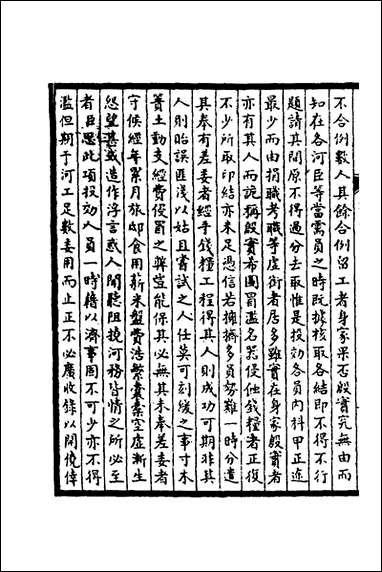 不合例數人其餘合例留工者身家果否殷實究無由而
知在各河臣等當需員之時既據核取各結即不得不行
題請其間原不得過分去取惟是投効各員內科甲正途
最少而由捐職考職等虛銜者居多雖實在身家殷實者
亦有其人而詭稱殷實希圖冒濫名器侵蝕錢糧者正復
不少所取印結亦未足憑信若擁擠多員勢難一時分遣
其奉有差委者經手錢糧工程得其人則成功可期非其
人則貽誤匪淺以姑且嘗試之人任莫可刻緩之事寸木
簣土動支經費侵冒之弊豈能保其必無其未奉差委者
守候經年累月旅邸食用薪米盤費浩繁囊橐空虛漸生
怨望甚或造作浮言或人聞聽阻撓河務皆情之所必至
者臣愚此項投効人員一時藉以濟事固不可少亦不得
濫但期于河工足敷委用而止正不必廣收錄以開僥倖